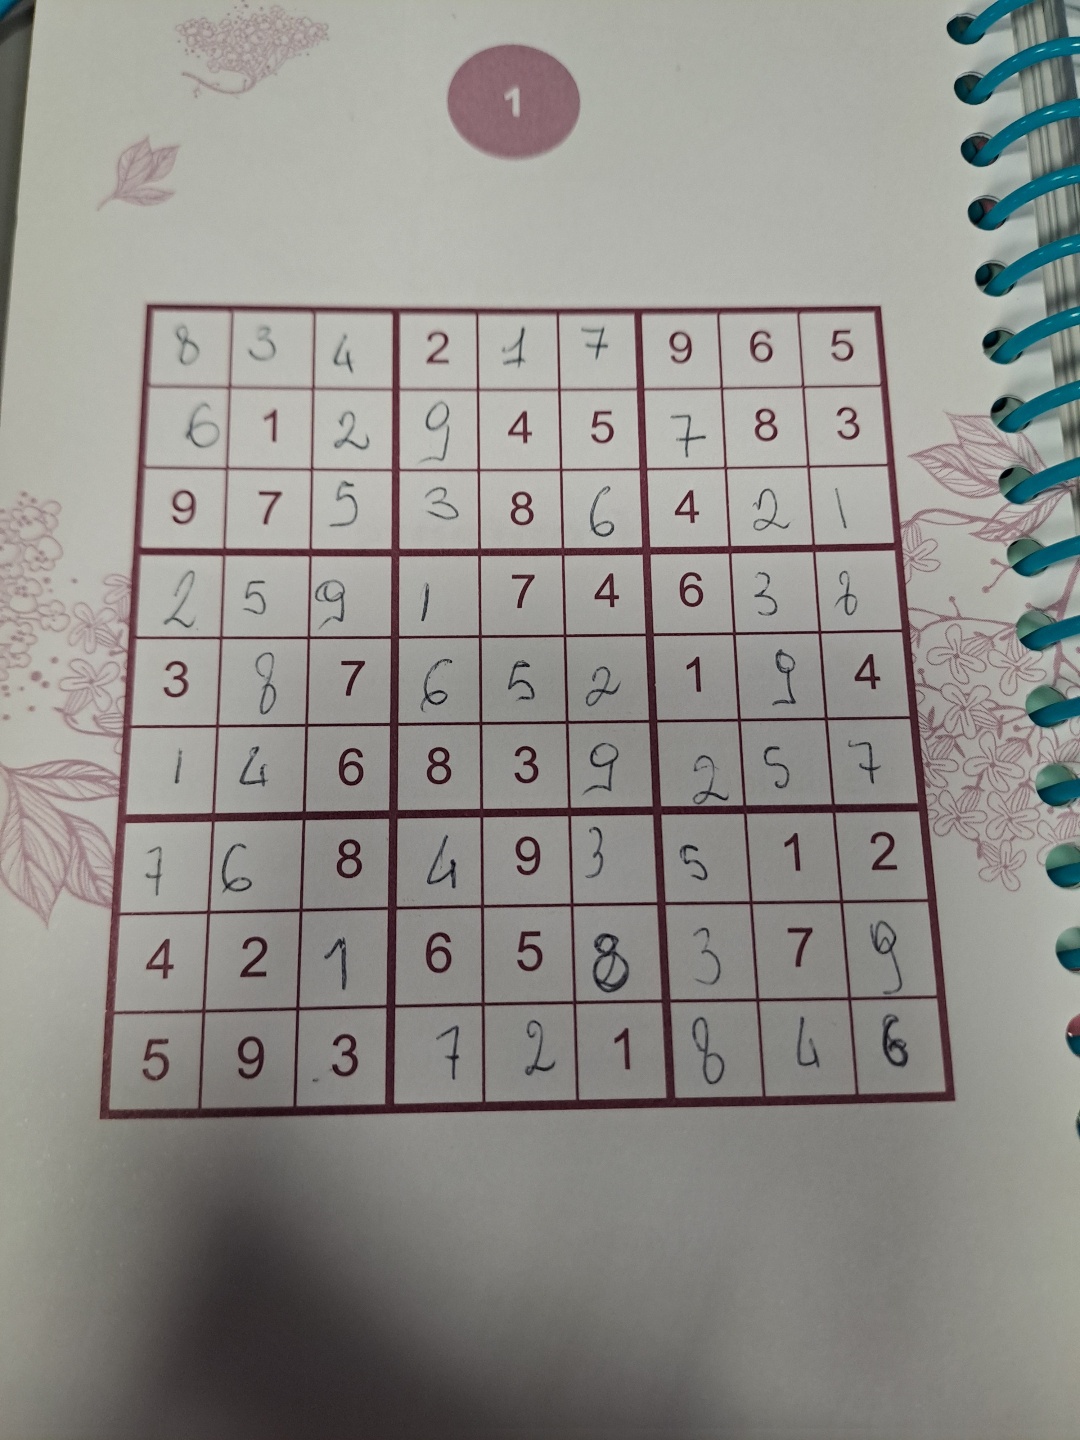 1
8 3 4 2 1 7 9 6 5
6 1 2 9 4 5 7 8 3
9 7 5 3 8 6 4 2 1
2 5 9 1 7 4 6 3 8
3 8 7 6 5 2 1 9 4
1 4 6 8 3 9 2 5 7
7 6 8 4 9 3 5 1 2
4 2 1 6 5 8 3 7 9
5 9 3 7 2 1 8 4 6